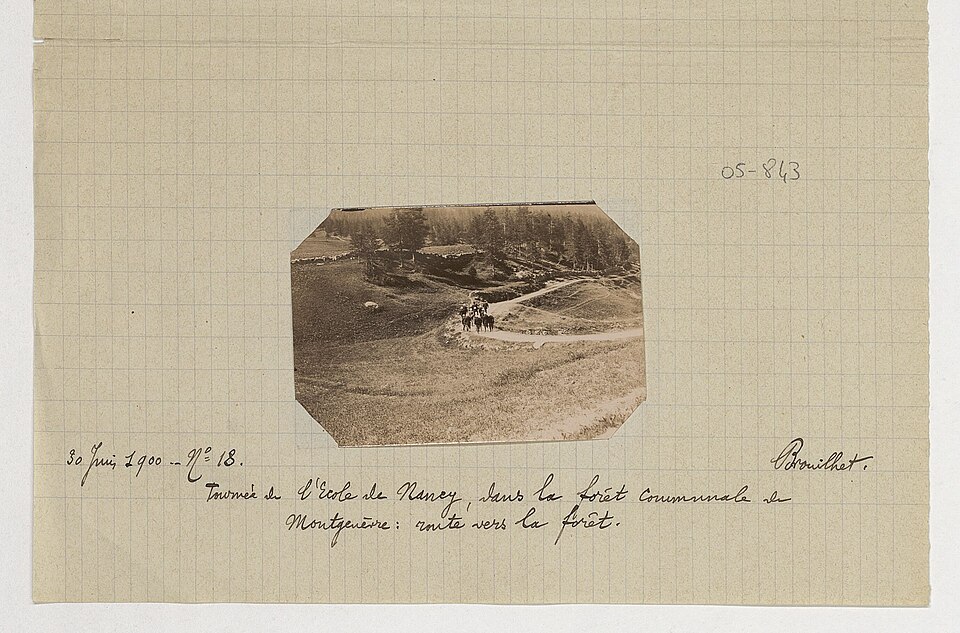 05-843
30 Juin 1900 — Nº 18.
Brouilhet.
Tournée de l'Ecole de Nancy, dans la forêt communale de
Montgenèvre : route vers la forêt.